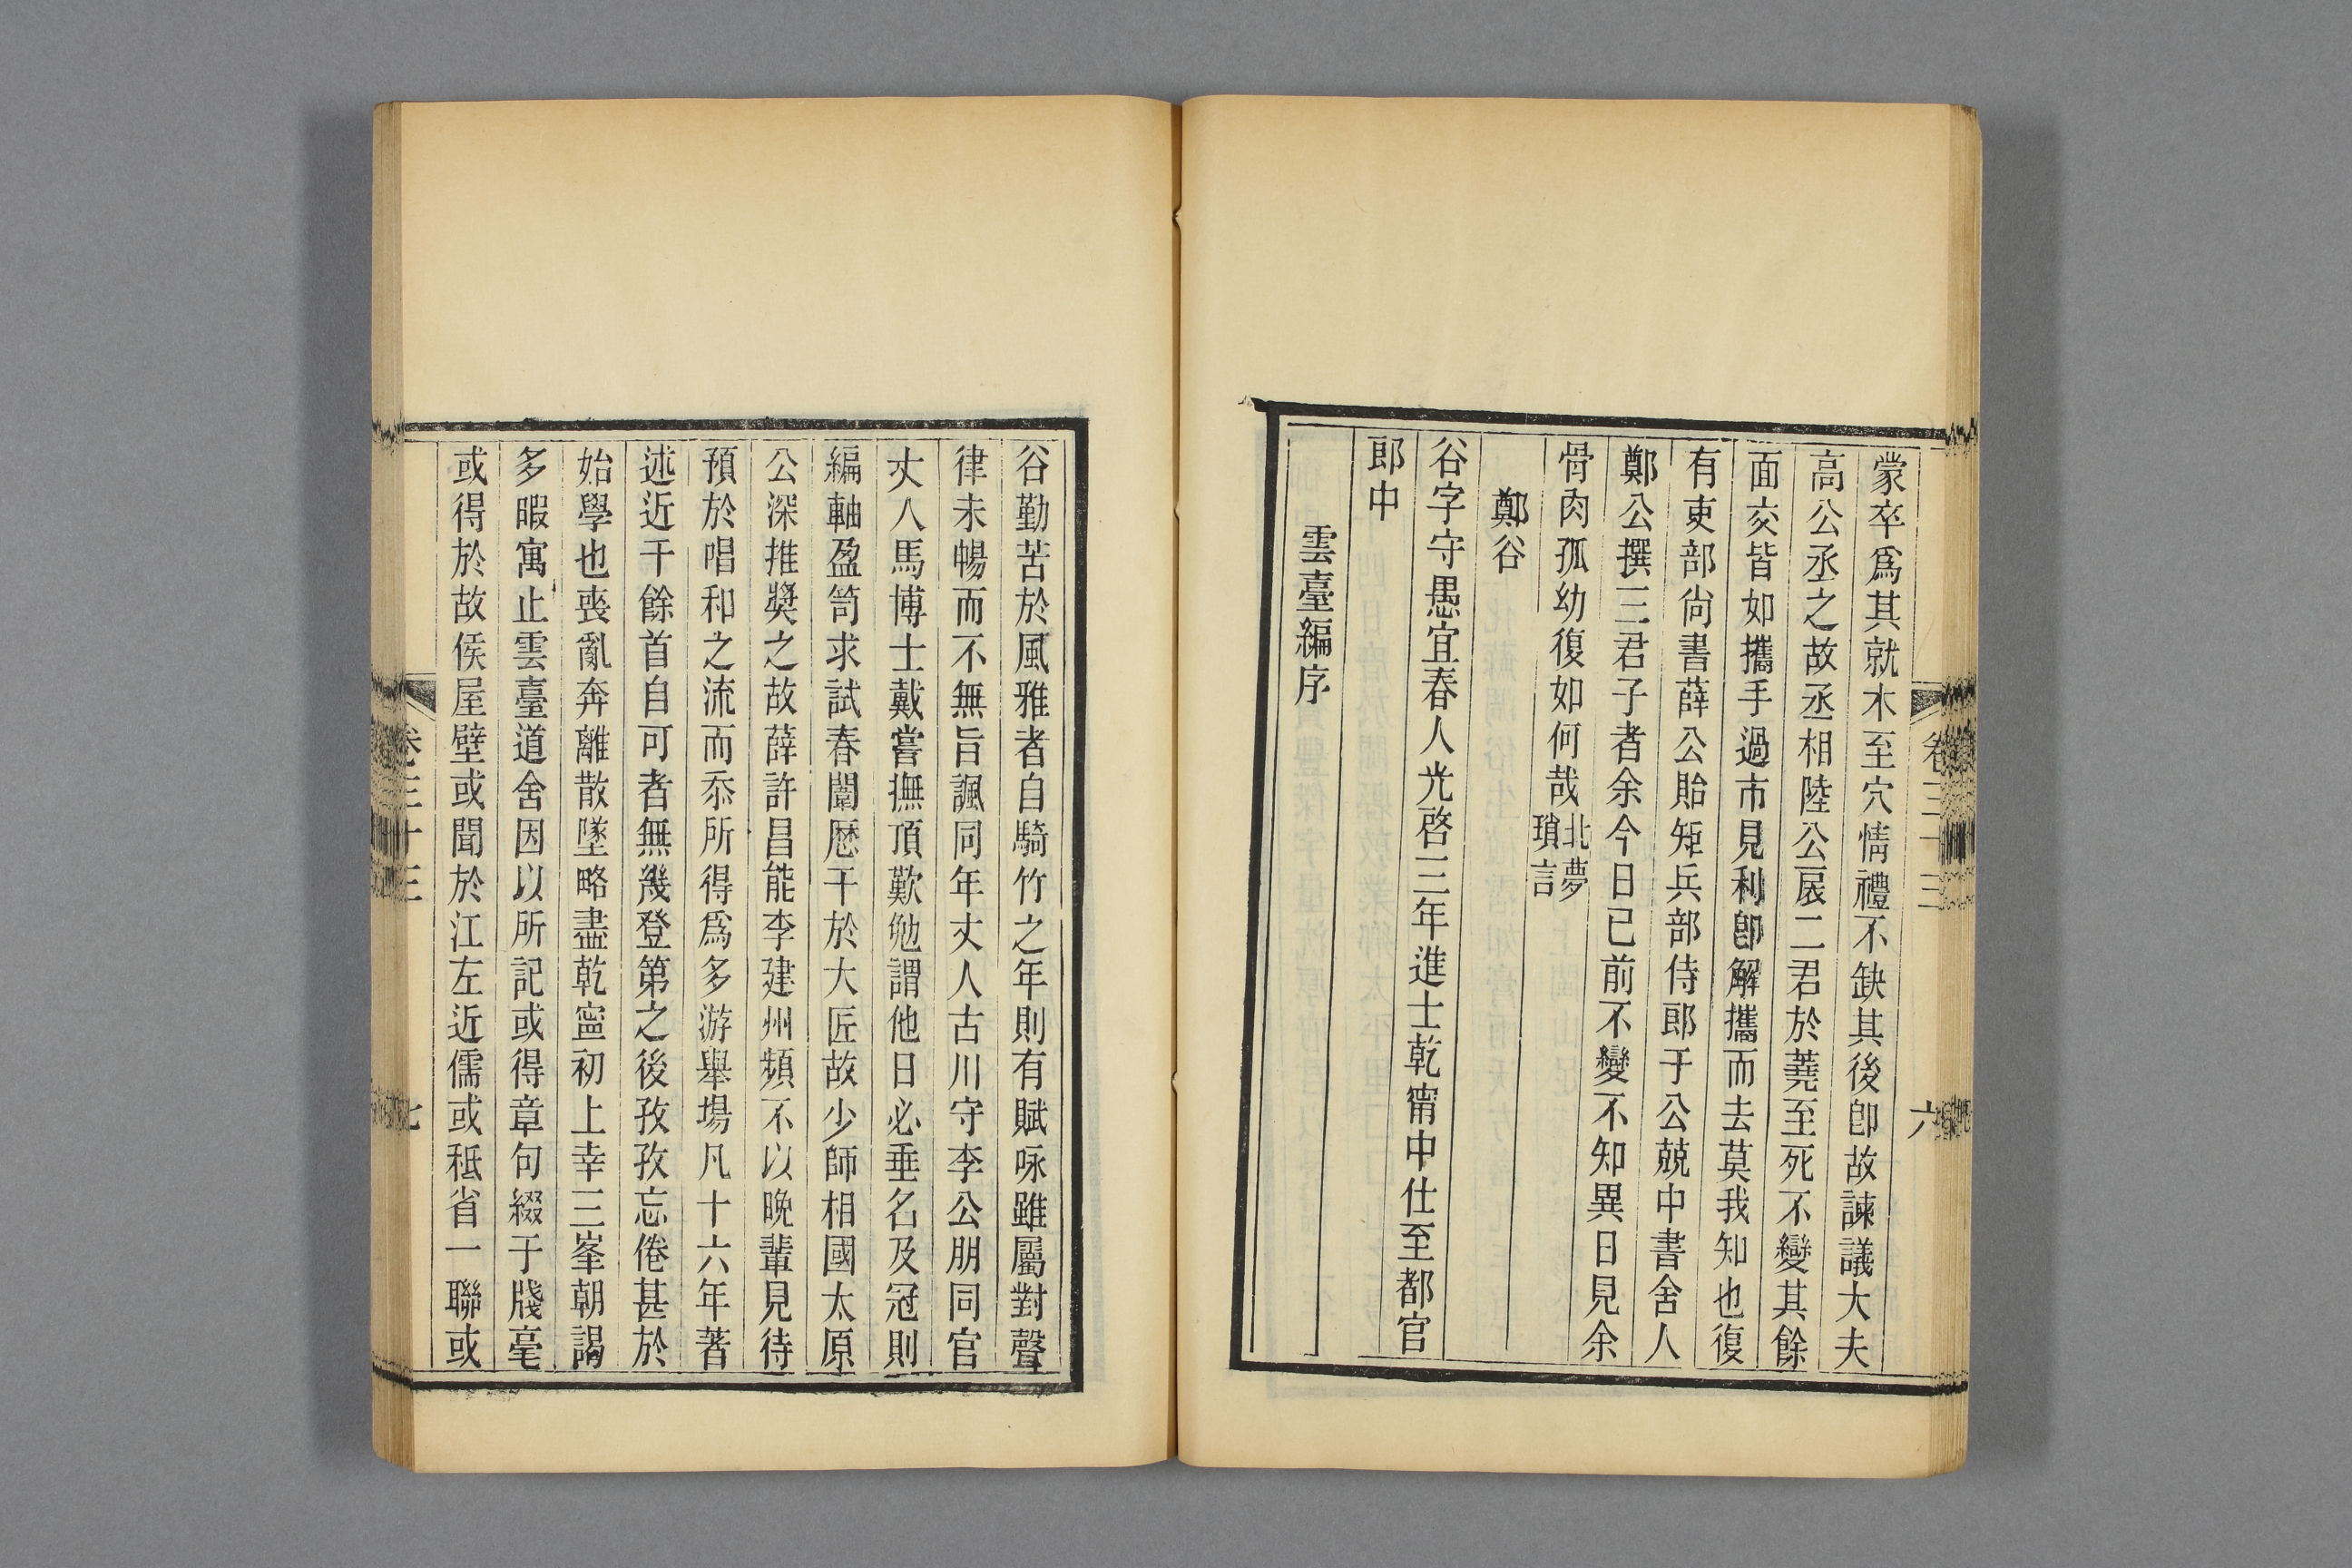 蒙卒爲其就木至穴情禮不缺其後卽故諫議大夫
高公丞之故丞相陸公扆二君於蕘至死不變其餘
面交皆如攜手過市見利卽解攜而去莫我知也復
有吏部尙書薛公貽矩兵部侍郎于公兢中書舍人
鄭公撰三君子者余今日已前不變不知異日見余
骨肉孤幼復如何哉北夢瑣言
鄭谷
谷字守愚宜春人光啓三年進士乾甯中仕至都官
郎中
雲臺編序
卷三十三
六
谷勤苦於風雅者自騎竹之年則有賦咏雖屬對聲
律未暢而不無旨諷同年丈人古川守李公朋同官
丈人馬博士戴嘗撫頂歎勉謂他日必垂名及冠則
編軸盈笥求試春闈歷干於大匠故少師相國太原
公深推奬之故薛許昌能李建州頻不以晩輩見待
預於唱和之流而忝所得爲多游舉場凡十六年著
述近千餘首自可者無幾登第之後孜孜忘倦甚於
始學也喪亂奔離散墜略盡乾寧初上幸三峯朝謁
多暇寓止雲臺道舍因以所記或得章句綴于牋毫
或得於故侯屋壁或聞於江左近儒或秪省一聯或
卷三十三
七